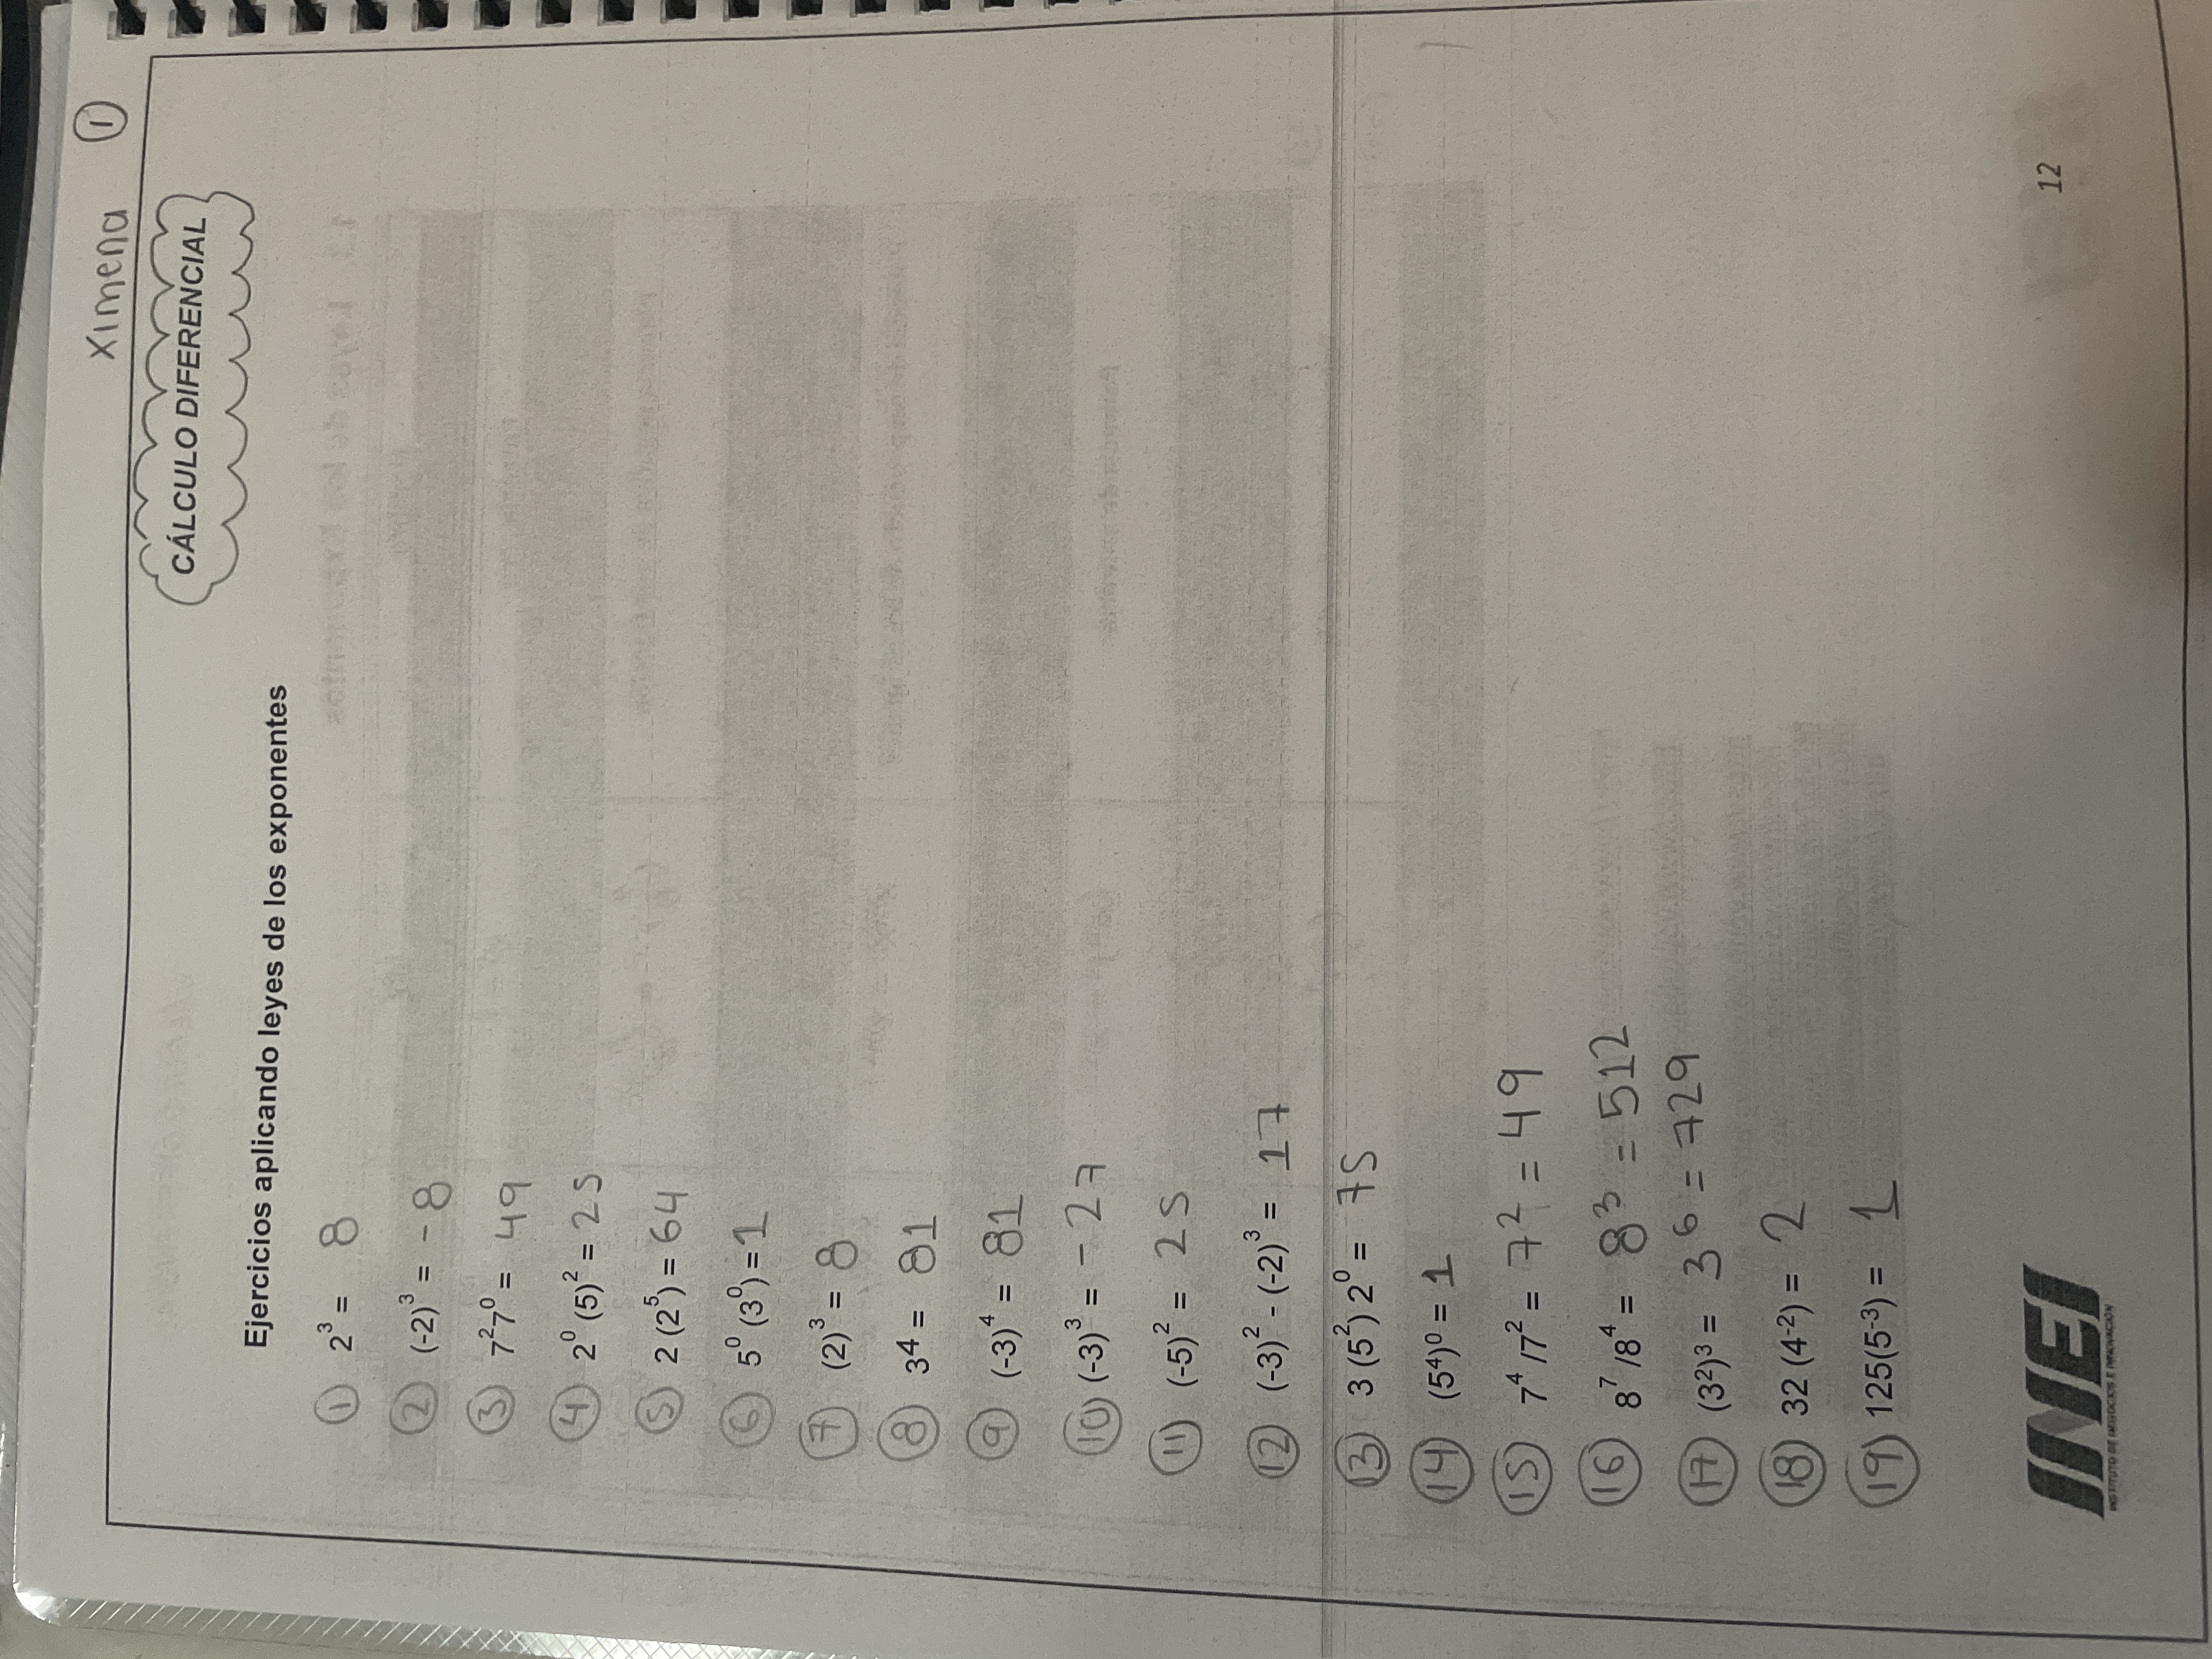 Ximena ①
CÁLCULO DIFERENCIAL
Ejercicios aplicando leyes de los exponentes
① 2³ = 8
② (-2)³ = -8
③ 7²7⁰ = 49
④ 2⁰ (5)² = 25
⑤ 2 (2⁵) = 64
⑥ 5⁰ (3⁰) = 1
⑦ (2)³ = 8
⑧ 3⁴ = 81
⑨ (-3)⁴ = 81
⑩ (-3)³ = -27
⑪ (-5)² = 25
⑫ (-3)² - (-2)³ = 17
⑬ 3 (5²) 2⁰ = 75
⑭ (5⁴)⁰ = 1
⑮ 7⁴ /7² = 7² = 49
⑯ 8⁷ /8⁴ = 8³ = 512
⑰ (3²)³ = 3⁶ = 729
⑱ 32 (4⁻²) = 2
⑲ 125(5⁻³) = 1
INEI
INSTITUTO DE NEGOCIOS E INNOVACIÓN
12